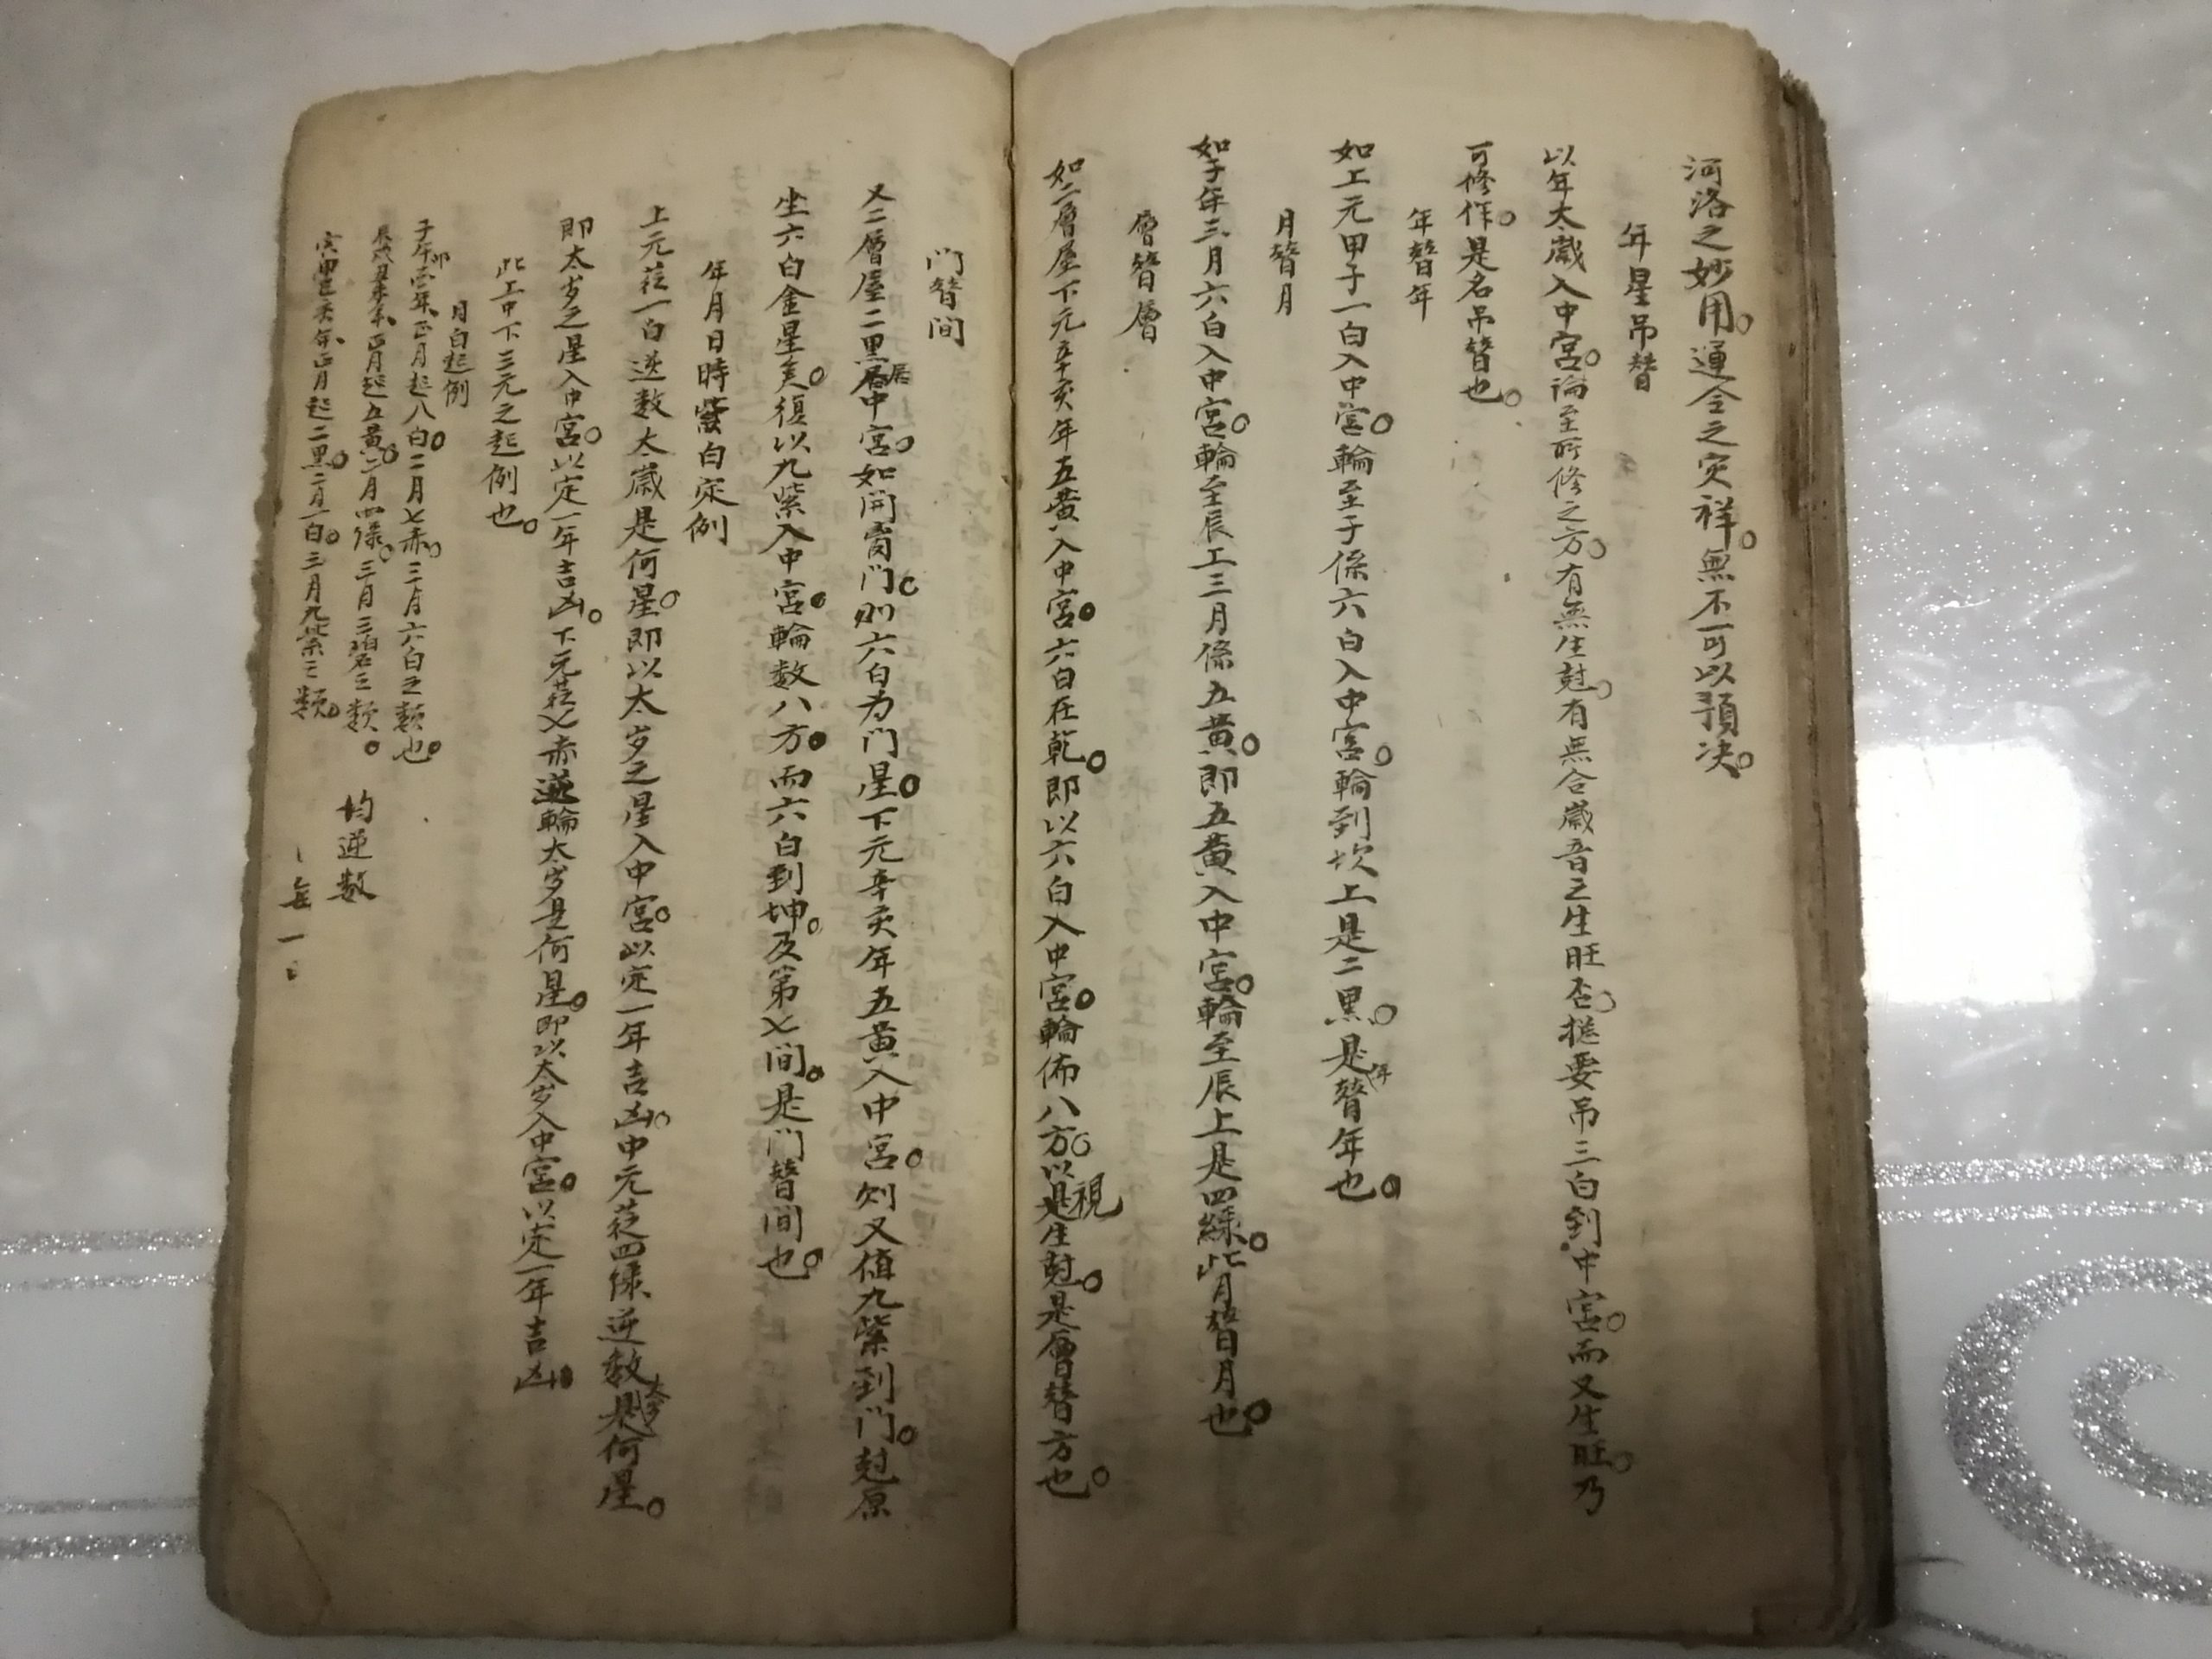 河洛之妙用。運令之灾祥。無不可以預决。
年星吊替
以年太歲入中宮。論至所修之方。有無生尅。有無合歲音之生旺否。搃要吊三白到中宮。而又生旺。乃
可修作。是名吊替也。
年替年
如上元甲子一白入中宮。輪至子係六白入中宮。輪到坎上是二黑。是年替年也。
月替月
如子年三月六白入中宮。輪至辰上三月係五黃。即五黃入中宮。輪至辰上是四綠。此月替月也。
層替層
如二層屋下元辛亥年五黃入中宮。六白在乾。即以六白入中宮。輪佈八方。以視生尅。是層替方也。
門替间
又二層屋二黑居中宮。如開門。則六白为门星。下元辛亥年五黃入中宮。则又值九紫到门。尅原
坐六白金星矣。復以九紫入中宮。輪数八方。而六白到坤。及第七间。是门替间也。
年月日時紫白定例
上元莅一白逆数太歲是何星。即以太岁之星入中宮。以定一年吉凶。中元莅四绿逆数太岁是何星。
即太岁之星入中宮。以定一年吉凶。下元莅七赤逆輪太岁是何星。即以太岁入中宮。以定一年吉凶。
此上中下三元之起例也。
月白起例
子午卯酉年。正月起八白。二月七赤。三月六白之類也。
辰戌丑未年。正月起五黃。二月四绿。三月三碧之類。
寅申巳亥年。正月起二黑。二月一白。三月九紫之類。
均逆数